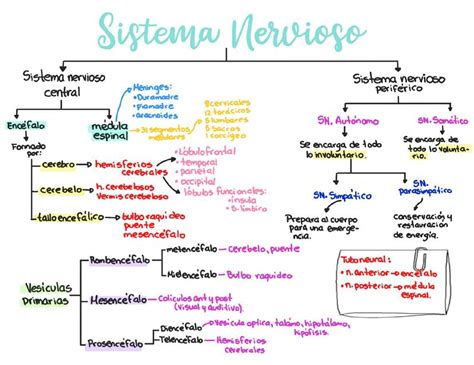 Sistema Nervioso
Sistema nervioso
central
Encéfalo
Formado
por:
cerebro
hemisferios
cerebrales
• Lóbulo frontal
• temporal
• parietal
• occipital
lóbulos funcionales:
• insula
• S. límbico
cerebelo
h. cerebelosos
Vermis cerebeloso
tallo encefálico
bulbo raquideo
puente
mesencéfalo
médula
espinal
Meninges:
• Duramadre
• Piamadre
• aracnoides
31 segmentos
medulares
8 cervicales
12 torácicos
5 lumbares
5 sacros
1 coccígeo
Sistema nervioso
periférico
SN. Autónomo
Se encarga de todo
lo involuntario.
SN. Somático
Se encarga de
todo lo volunta-
rio.
SN. Simpático
Prepara al cuerpo
para una emerge-
ncia.
SN.
parasimpático
conservación y
restauracion
de energía.
Vesículas
Primarias
Rombencéfalo
metencéfalo
cerebelo, puente
Mielencéfalo
Bulbo raquideo
Mesencéfalo
Coliculos ant y post
(visual y auditivo).
Prosencéfalo
Diencéfalo
Vesícula optica, talámo, hipotálamo,
hipófisis.
Telencéfalo
Hemisferios
cerebrales
Tubo neural:
• n. anterior → encéfalo
• n. posterior → médula
espinal.